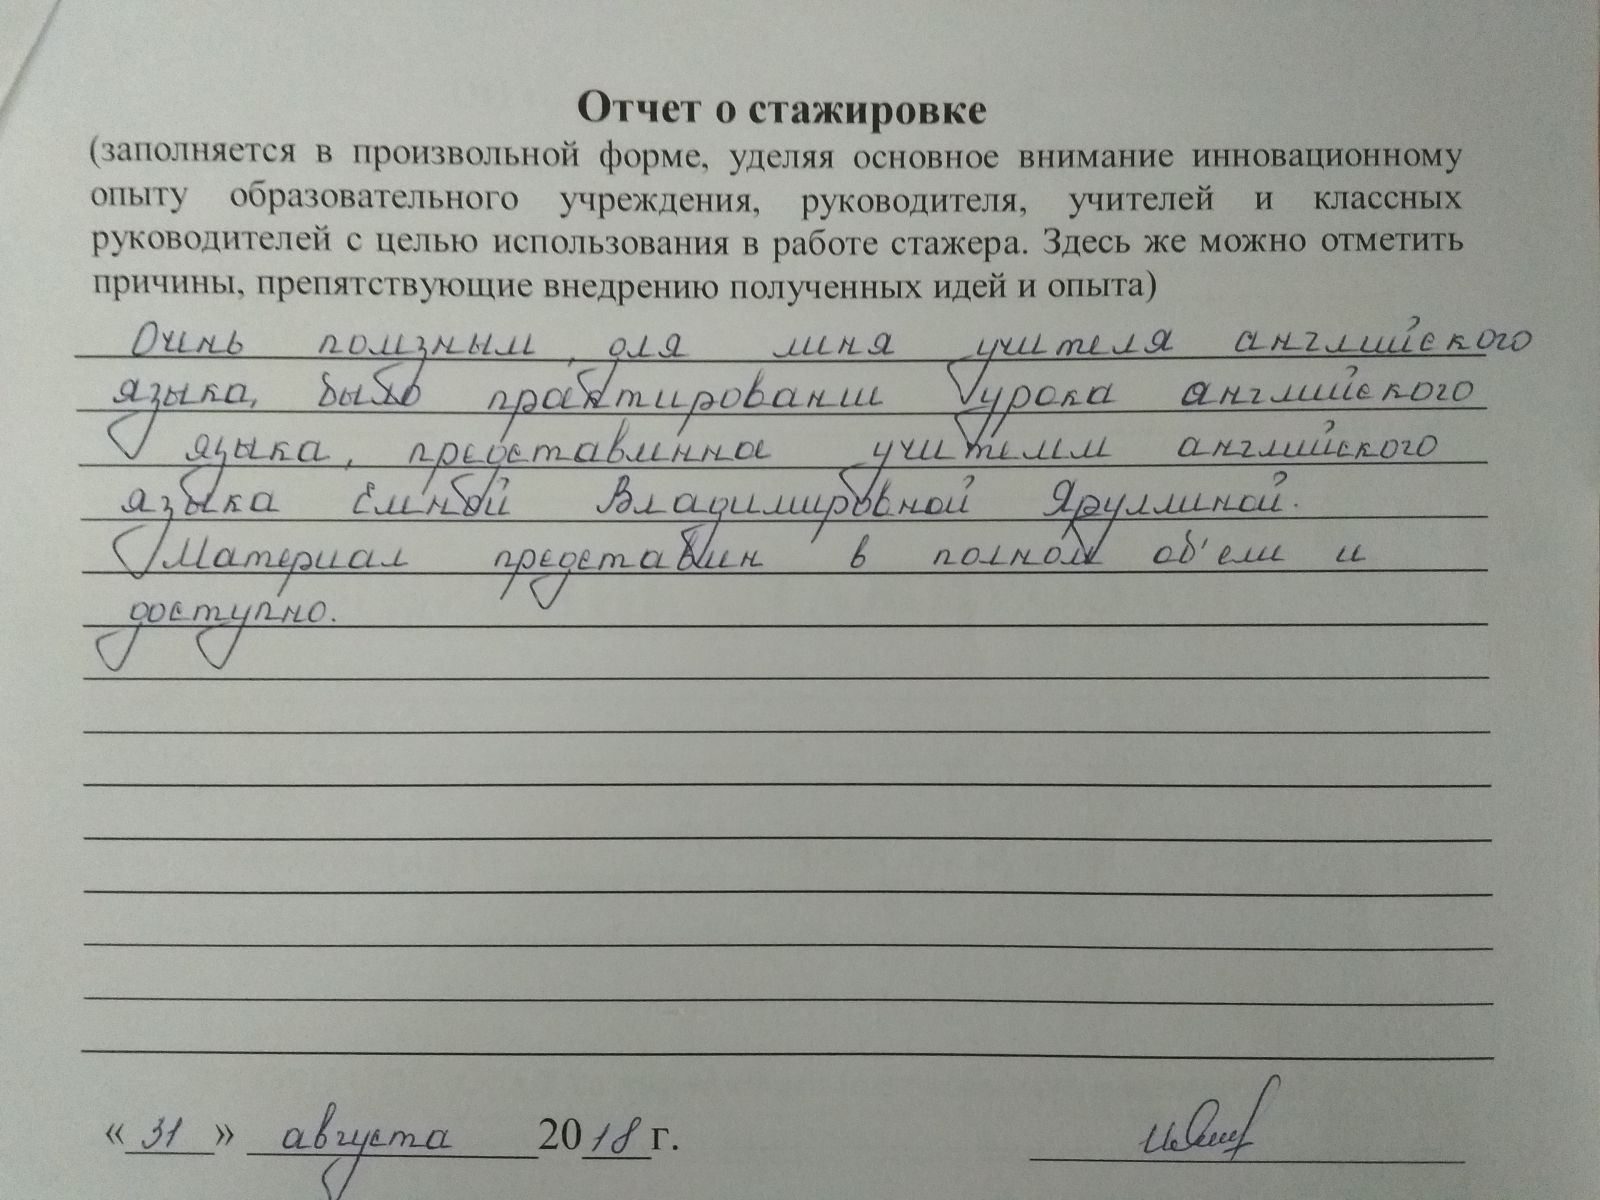 Отчет о стажировке
(заполняется в произвольной форме, уделяя основное внимание инновационному
опыту образовательного учреждения, руководителя, учителей и классных
руководителей с целью использования в работе стажера. Здесь же можно отметить
причины, препятствующие внедрению полученных идей и опыта)
Очень полезным, для меня учителя английского
языка, было проектирование урока английского
языка, представленна учителем английского
языка Еленой Владимировной Яруллиной.
Материал представлен в полном об'еме и
доступно.
«31» августа 2018 г.